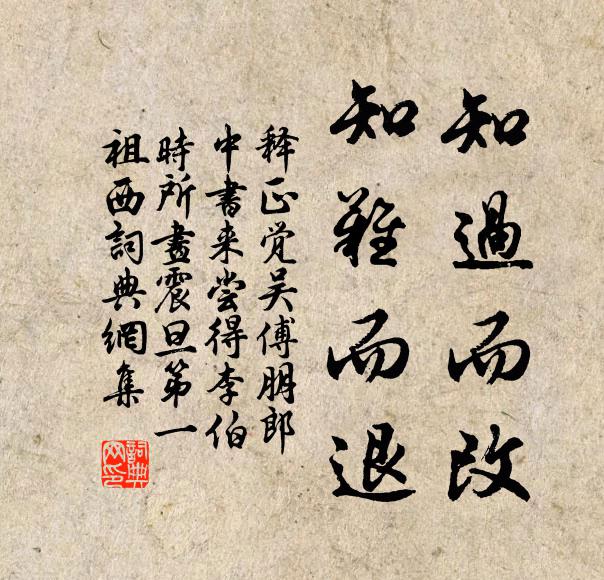 知過而改
知難而退
释正觉吴傅朋郎
中書来尝得李伯
時所畫震旦第一
祖西詞典網集
詞典網印